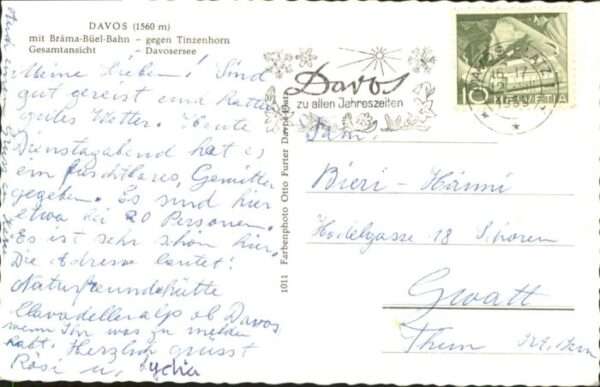 DAVOS (1560 m)
mit Bräma-Büel-Bahn - gegen Tinzenhorn
Gesamtansicht - Davosersee
Meine Lieben! Sind
gut gereist und hatten
gutes Wetter. Heute
Dienstagabend hat es
ein furchtbares Gewitter
gegeben. Es sind hier
etwa 20 Personen.
Es ist sehr schön hier.
Die Adresse lautet!
Naturfreundehütte
Clavadelleralp ob Davos
wenn Ihr was zu melden
habt. Herzlich grüsst
Rösi u.
1011 Farbenphoto Otto Furter Davos-Platz
Davos
zu allen Jahreszeiten
10
HELVETIA
Fam.
Bieri-Hänni
18
Gwatt
Thun Kt. Bern